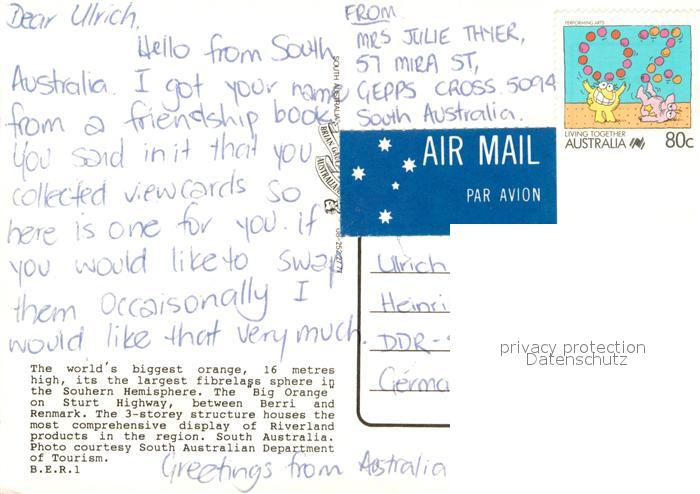 Dear Ulrich,
Hello from South
Australia. I got your name
from a friendship book.
You said in it that you
collected viewcards so
here is one for you. if
you would like to swap
them Occaisonally I
would like that very much.
The world's biggest orange, 16 metres
high, its the largest fibrelass sphere in
the Souhern Hemisphere. The Big Orange
on Sturt Highway, between Berri and
Renmark. The 3-storey structure houses the
most comprehensive display of Riverland
products in the region. South Australia.
Photo courtesy South Australian Department
of Tourism.
B.E.R.1
Greetings from Australia
SOUTH AUSTRALIA
FROM.
MRS JULIE THYER,
57 MIRA ST,
GEPPS CROSS. 5094
South Australia.
PERFORMING ARTS
LIVING TOGETHER
AUSTRALIA 80c
AIR MAIL
PAR AVION
Ulrich
Heinri
DDR-
Germa
privacy protection
Datenschutz